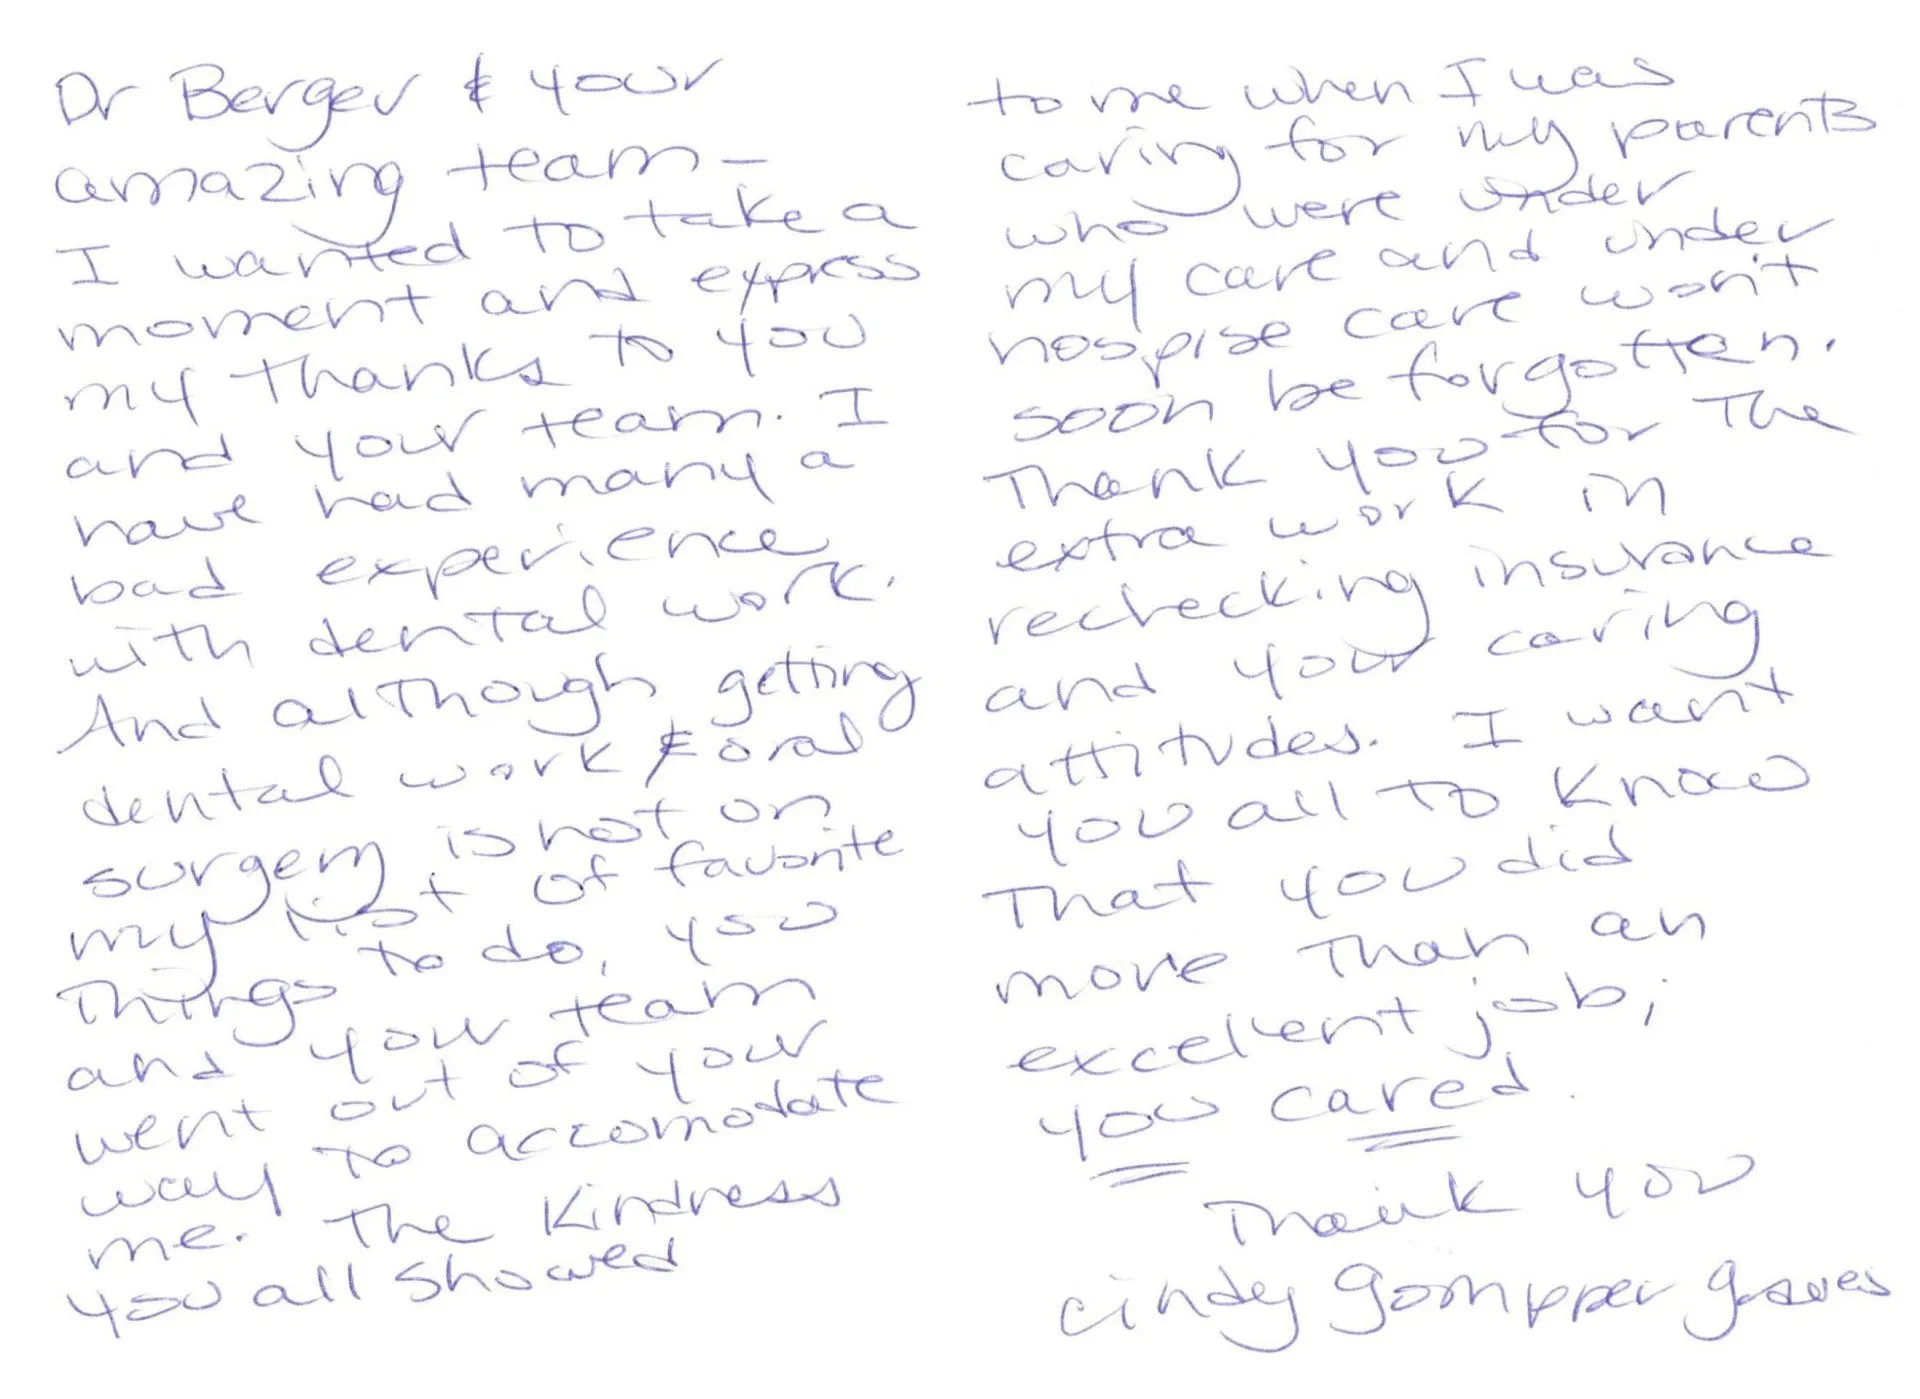 Dr Berger & your
amazing team -
I wanted to take a
moment and express
my thanks to you
and your team. I
have had many a
bad experience
with dental work.
And although getting
dental work & oral
surgery is not on
my list of favorite
things to do, you
and your team
went out of your
way to accomodate
me. The kindness
you all showed
to me when I was
caring for my parents
who were under
my care and under
hospise care won't
soon be forgotten.
Thank you for the
extra work in
rechecking insurance
and your caring
attitudes. I want
you all to know
that you did
more than an
excellent job;
you cared.
Thank you
cindy gompper graves